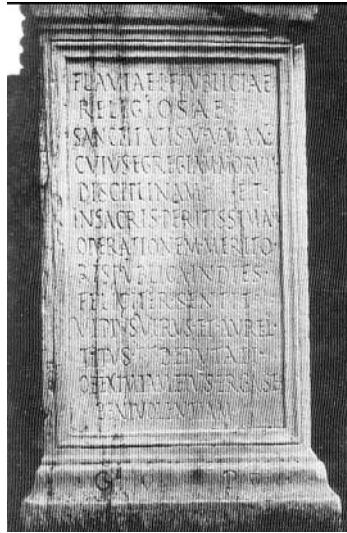 FLAVIAE L F PVBLICIAE
RELIGIOSAE
SANCTITATIS V V MAX
CVIVS EGREGIAM MORVM
DISCIPLINAM ET
IN SACRIS PERITISSIMA
OPERATIONEM MERITO
RES PVBLICA IN DIES
FELICITER SENTIT
VLPIVS VERVS ET AVREL
TITVS DEPVTATI
OB EXIMIAM EIVS ERGA SE
BENIVOLENTIAM
G P